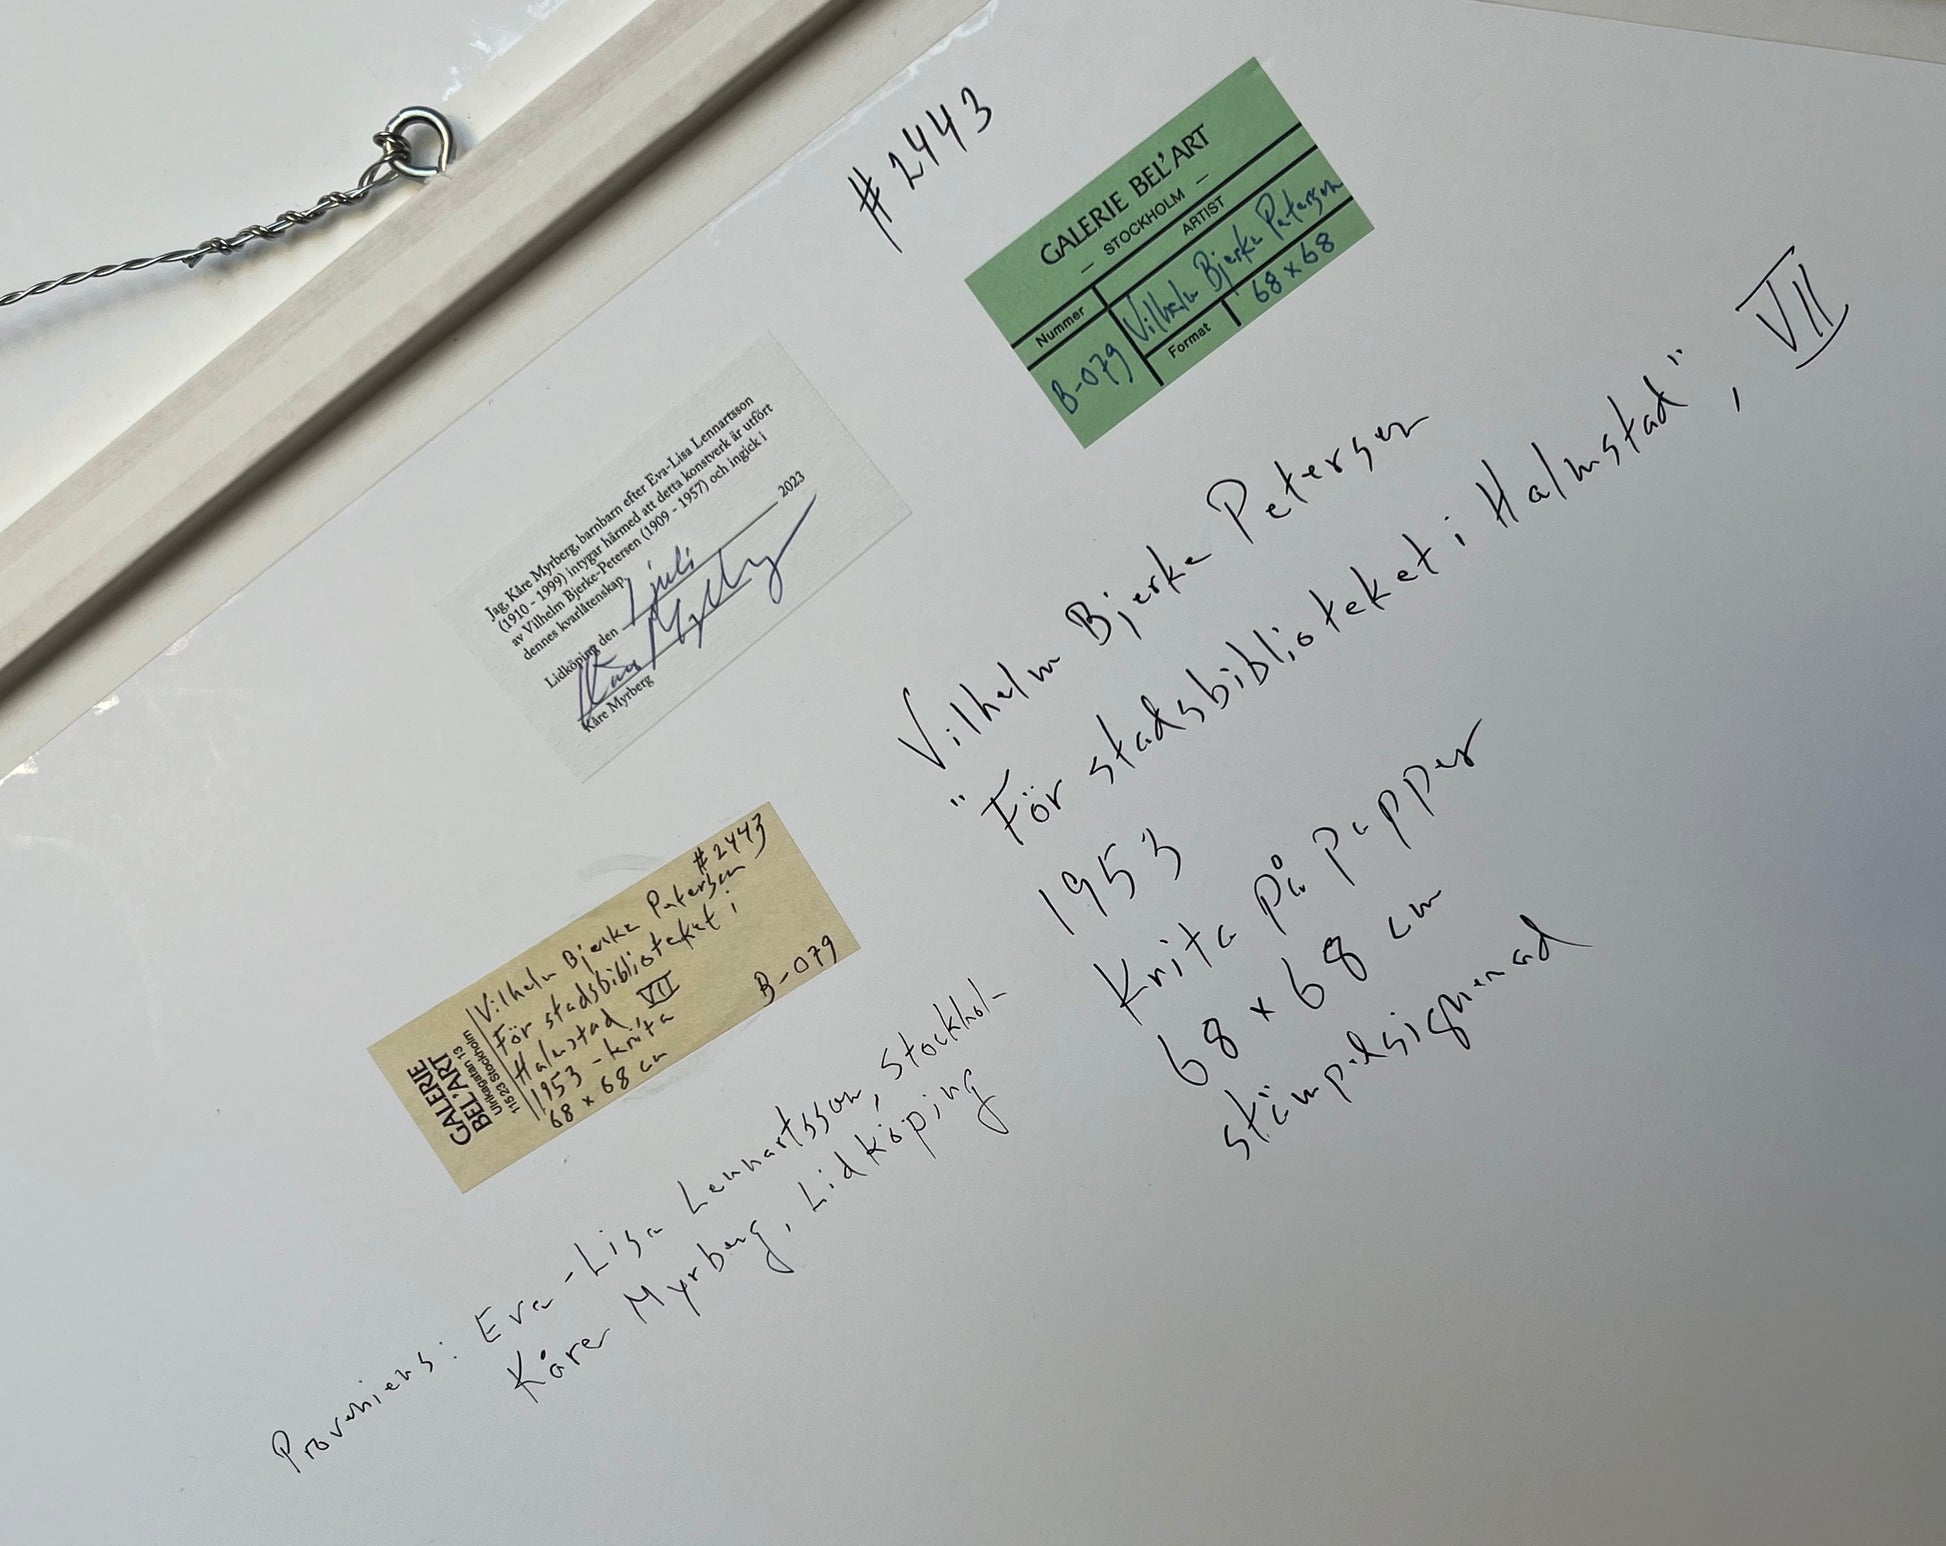 # 2443
GALERIE BEL'ART
– STOCKHOLM –
Nummer
ARTIST
B-079
Vilhelm Bjerke Petersen
Format
68 x 68
Jag, Kåre Myrberg, barnbarn efter Eva-Lisa Lennartsson
(1910 - 1999) intygar härmed att detta konstverk är utfört
av Vilhelm Bjerke-Petersen (1909 - 1957) och ingick i
dennes kvarlåtenskap.
Lidköping den 1 juli 2023
Kåre Myrberg
Kåre Myrberg
Vilhelm Bjerke Petersen
"För stadsbiblioteket i Halmstad", VII
1953
Krita på papper
68 x 68 cm
stämpelsignerad
GALERIE
BEL'ART
Ulrikagatan 13
115 23 Stockholm
# 2443
Vilhelm Bjerke Petersen
För stadsbiblioteket i
Halmstad, VII
1953 - krita
68 x 68 cm
B-079
Proveniens: Eva-Lisa Lennartsson, Stockholm
Kåre Myrberg, Lidköping